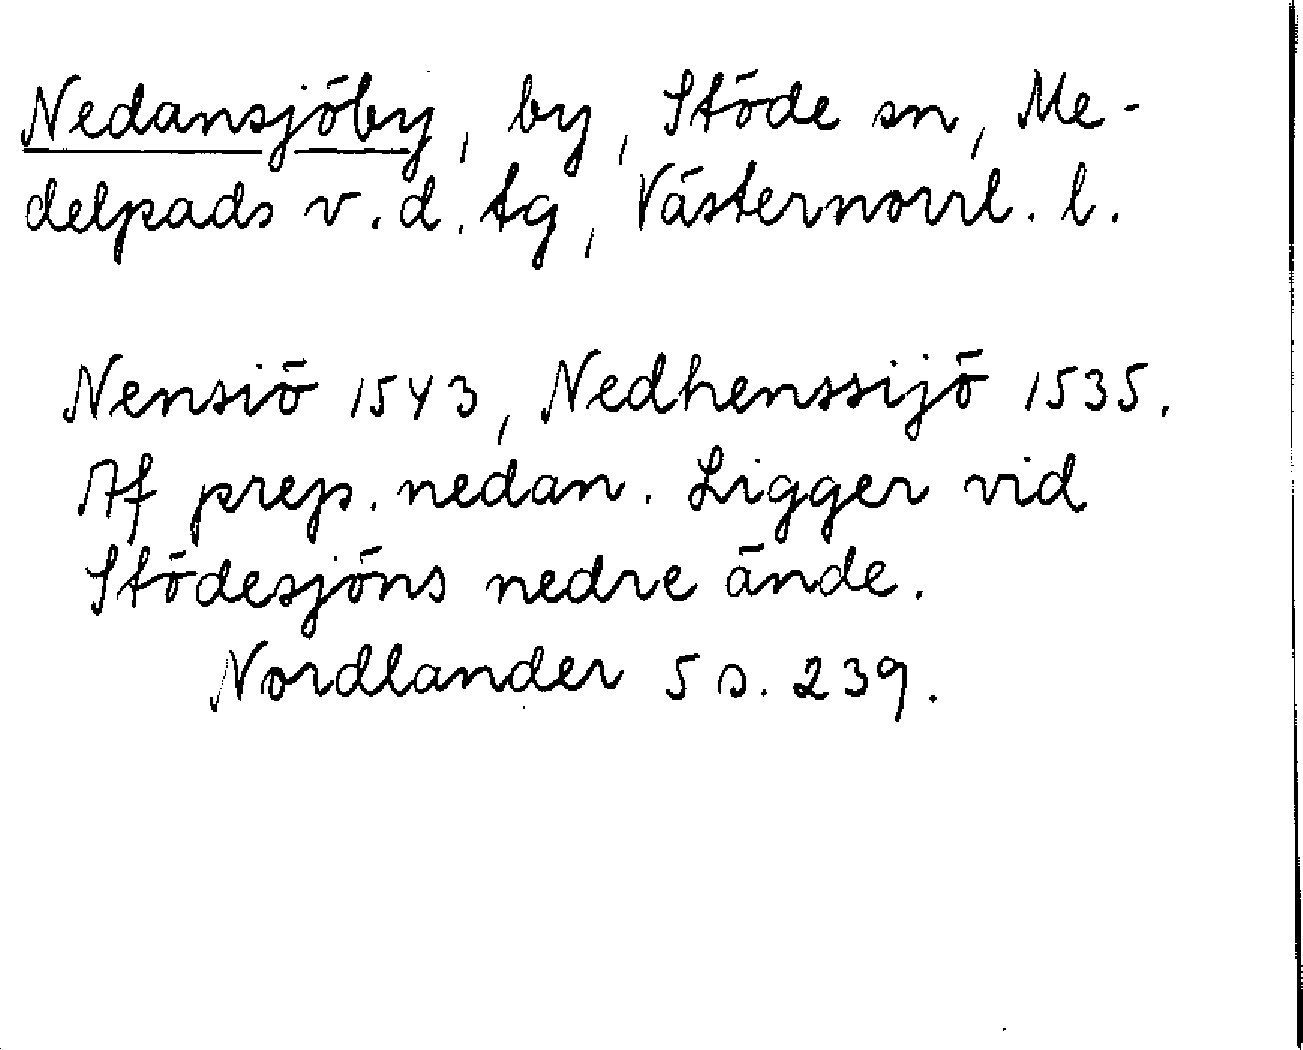 Nedansjöby, by, Stöde sn, Me-
delpads v. d. tg, Västernorrl. l.
Nensiö 1543, Nedhenssijö 1535.
Af prep. nedan. Ligger vid
Stödesjöns nedre ände.
Nordlander 5 s. 239.